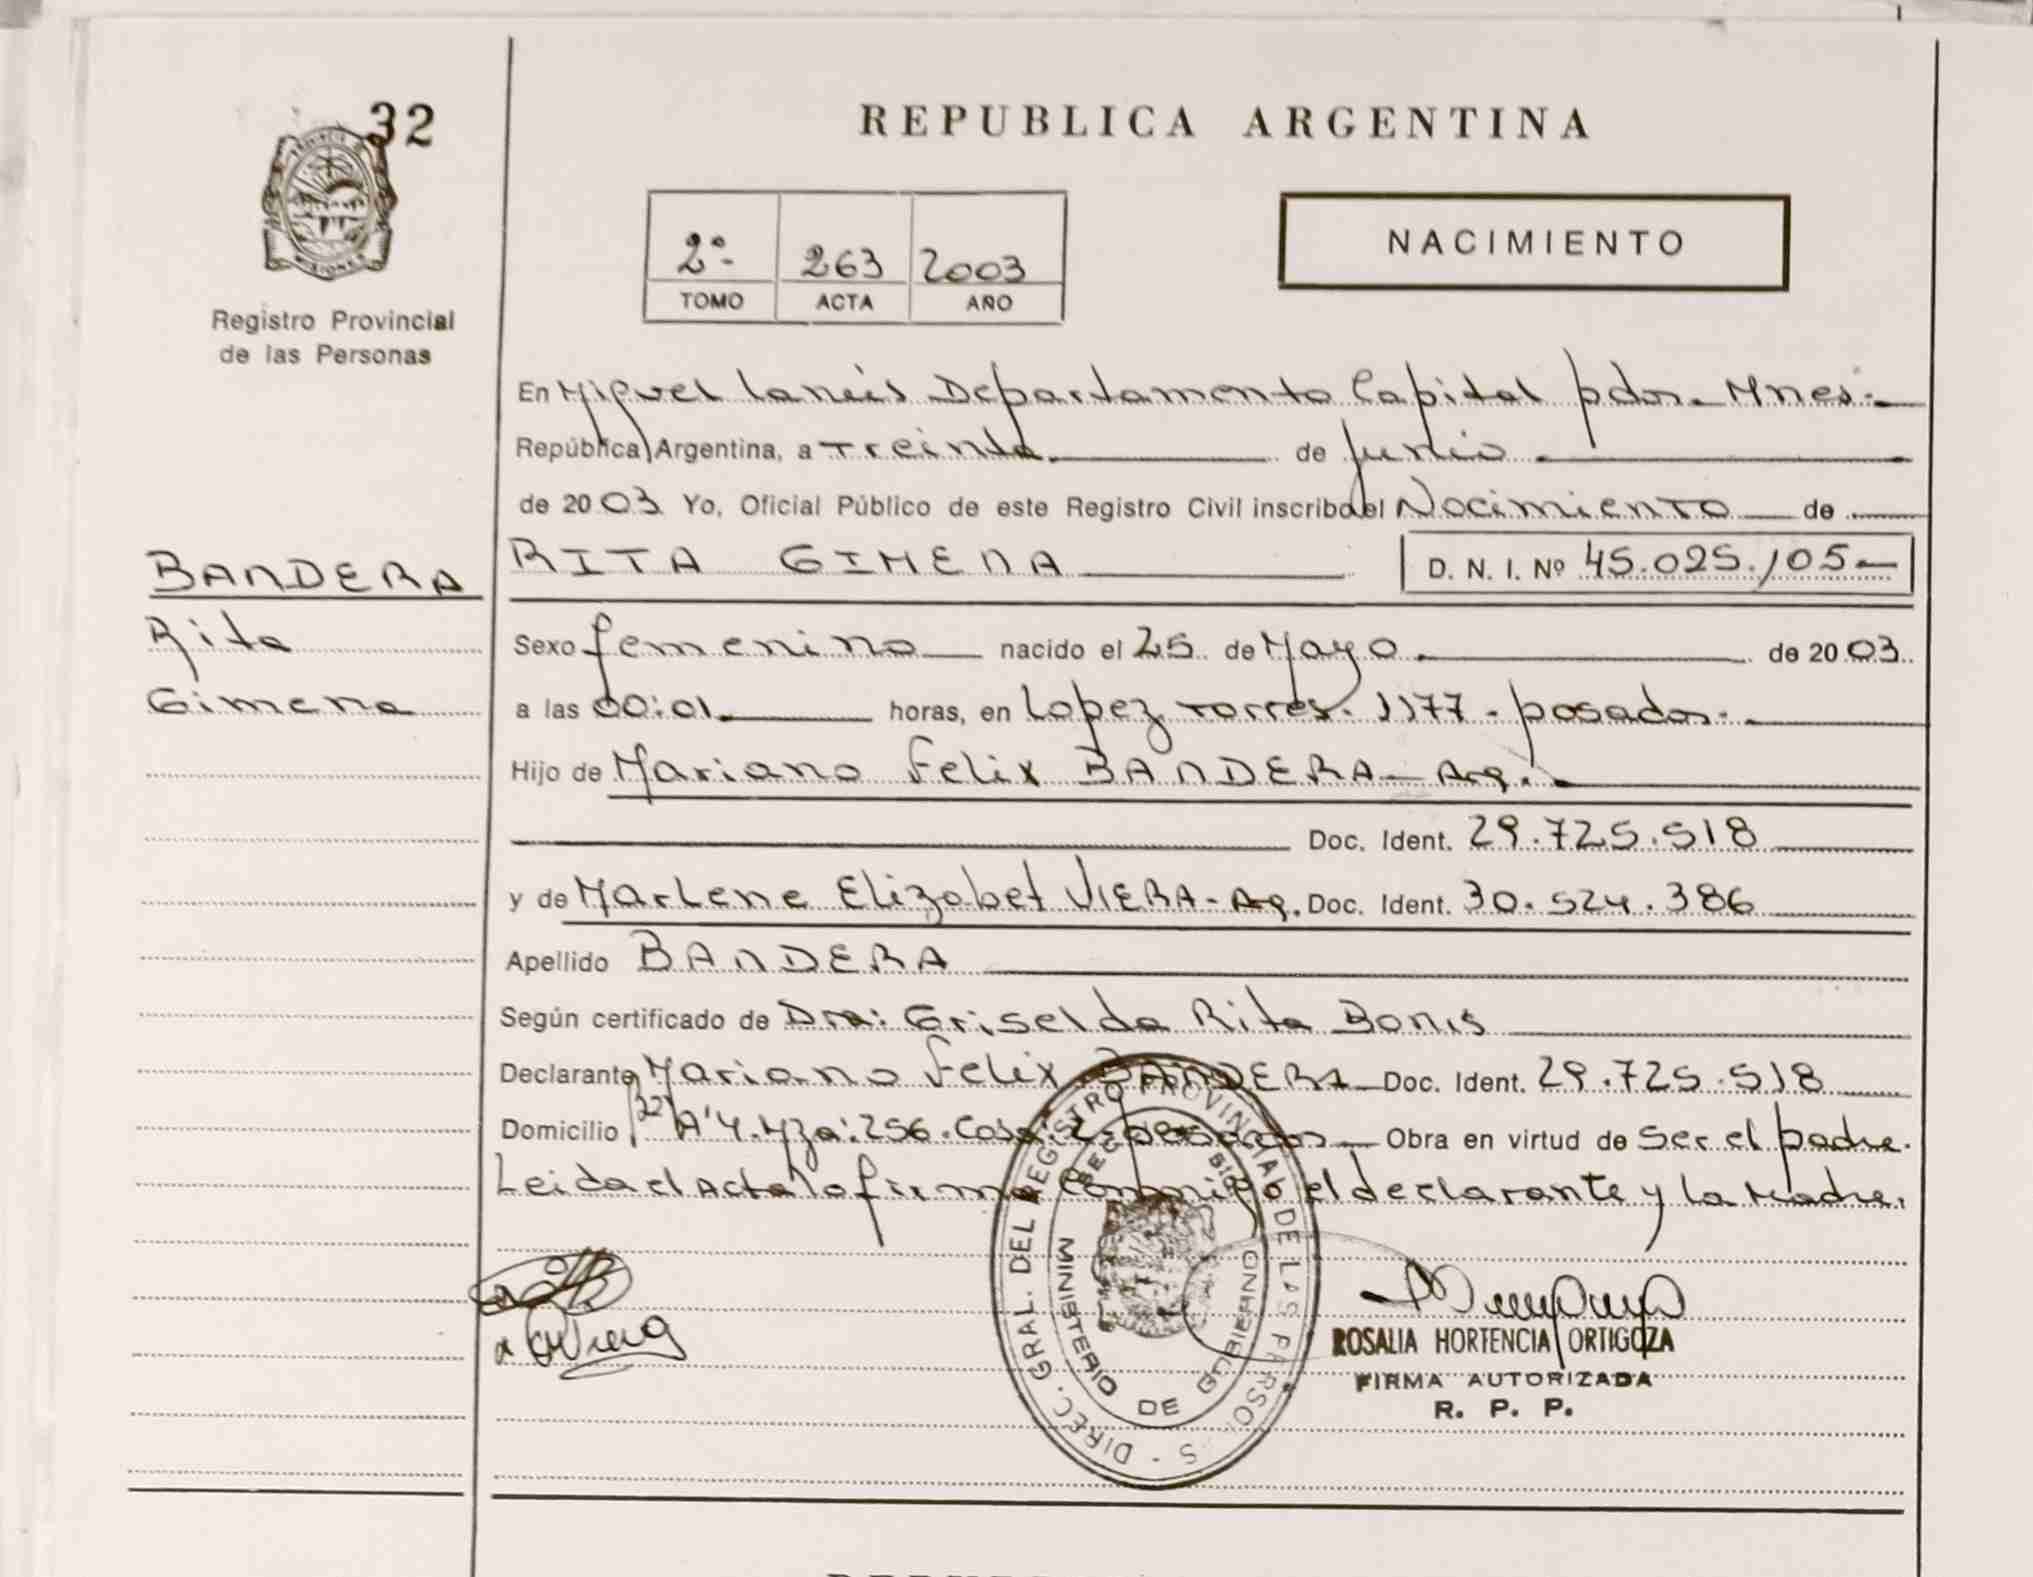 32
PROVINCIA DE
MISIONES
Registro Provincial
de las Personas
REPUBLICA ARGENTINA
2º- 263 2003
TOMO ACTA AÑO
NACIMIENTO
En Miguel Lanús Departamento Capital pdas. Mnes.-
República Argentina, a Treinta de Junio
de 2003 Yo, Oficial Público de este Registro Civil inscribo el Nacimiento de
BANDERA RITA GIMENA D. N. I. Nº 45.025.105-
Rita Sexo femenino nacido el 25 de Mayo de 2003
Gimena a las 00:01 horas, en Lopez Torres. 1177 - posadas.
Hijo de Mariano Felix BANDERA - Arg.
Doc. Ident. 29.725.518
y de Marlene Elizabet VIERA - Arg. Doc. Ident. 30.524.386
Apellido BANDERA
Según certificado de Dra: Griselda Rita Bonis
Declarante Mariano Felix BANDERA Doc. Ident. 29.725.518
Domicilio A'4. Mza: 256. Casa: 2 - posadas Obra en virtud de ser el padre.
Leida el Acta la firma conmigo el declarante y la Madre.
DIREC. GRAL. DEL REGISTRO PROVINCIAL DE LAS PERSONAS
MINISTERIO DE GOBIERNO
ROSALIA HORTENCIA ORTIGOZA
FIRMA AUTORIZADA
R. P. P.